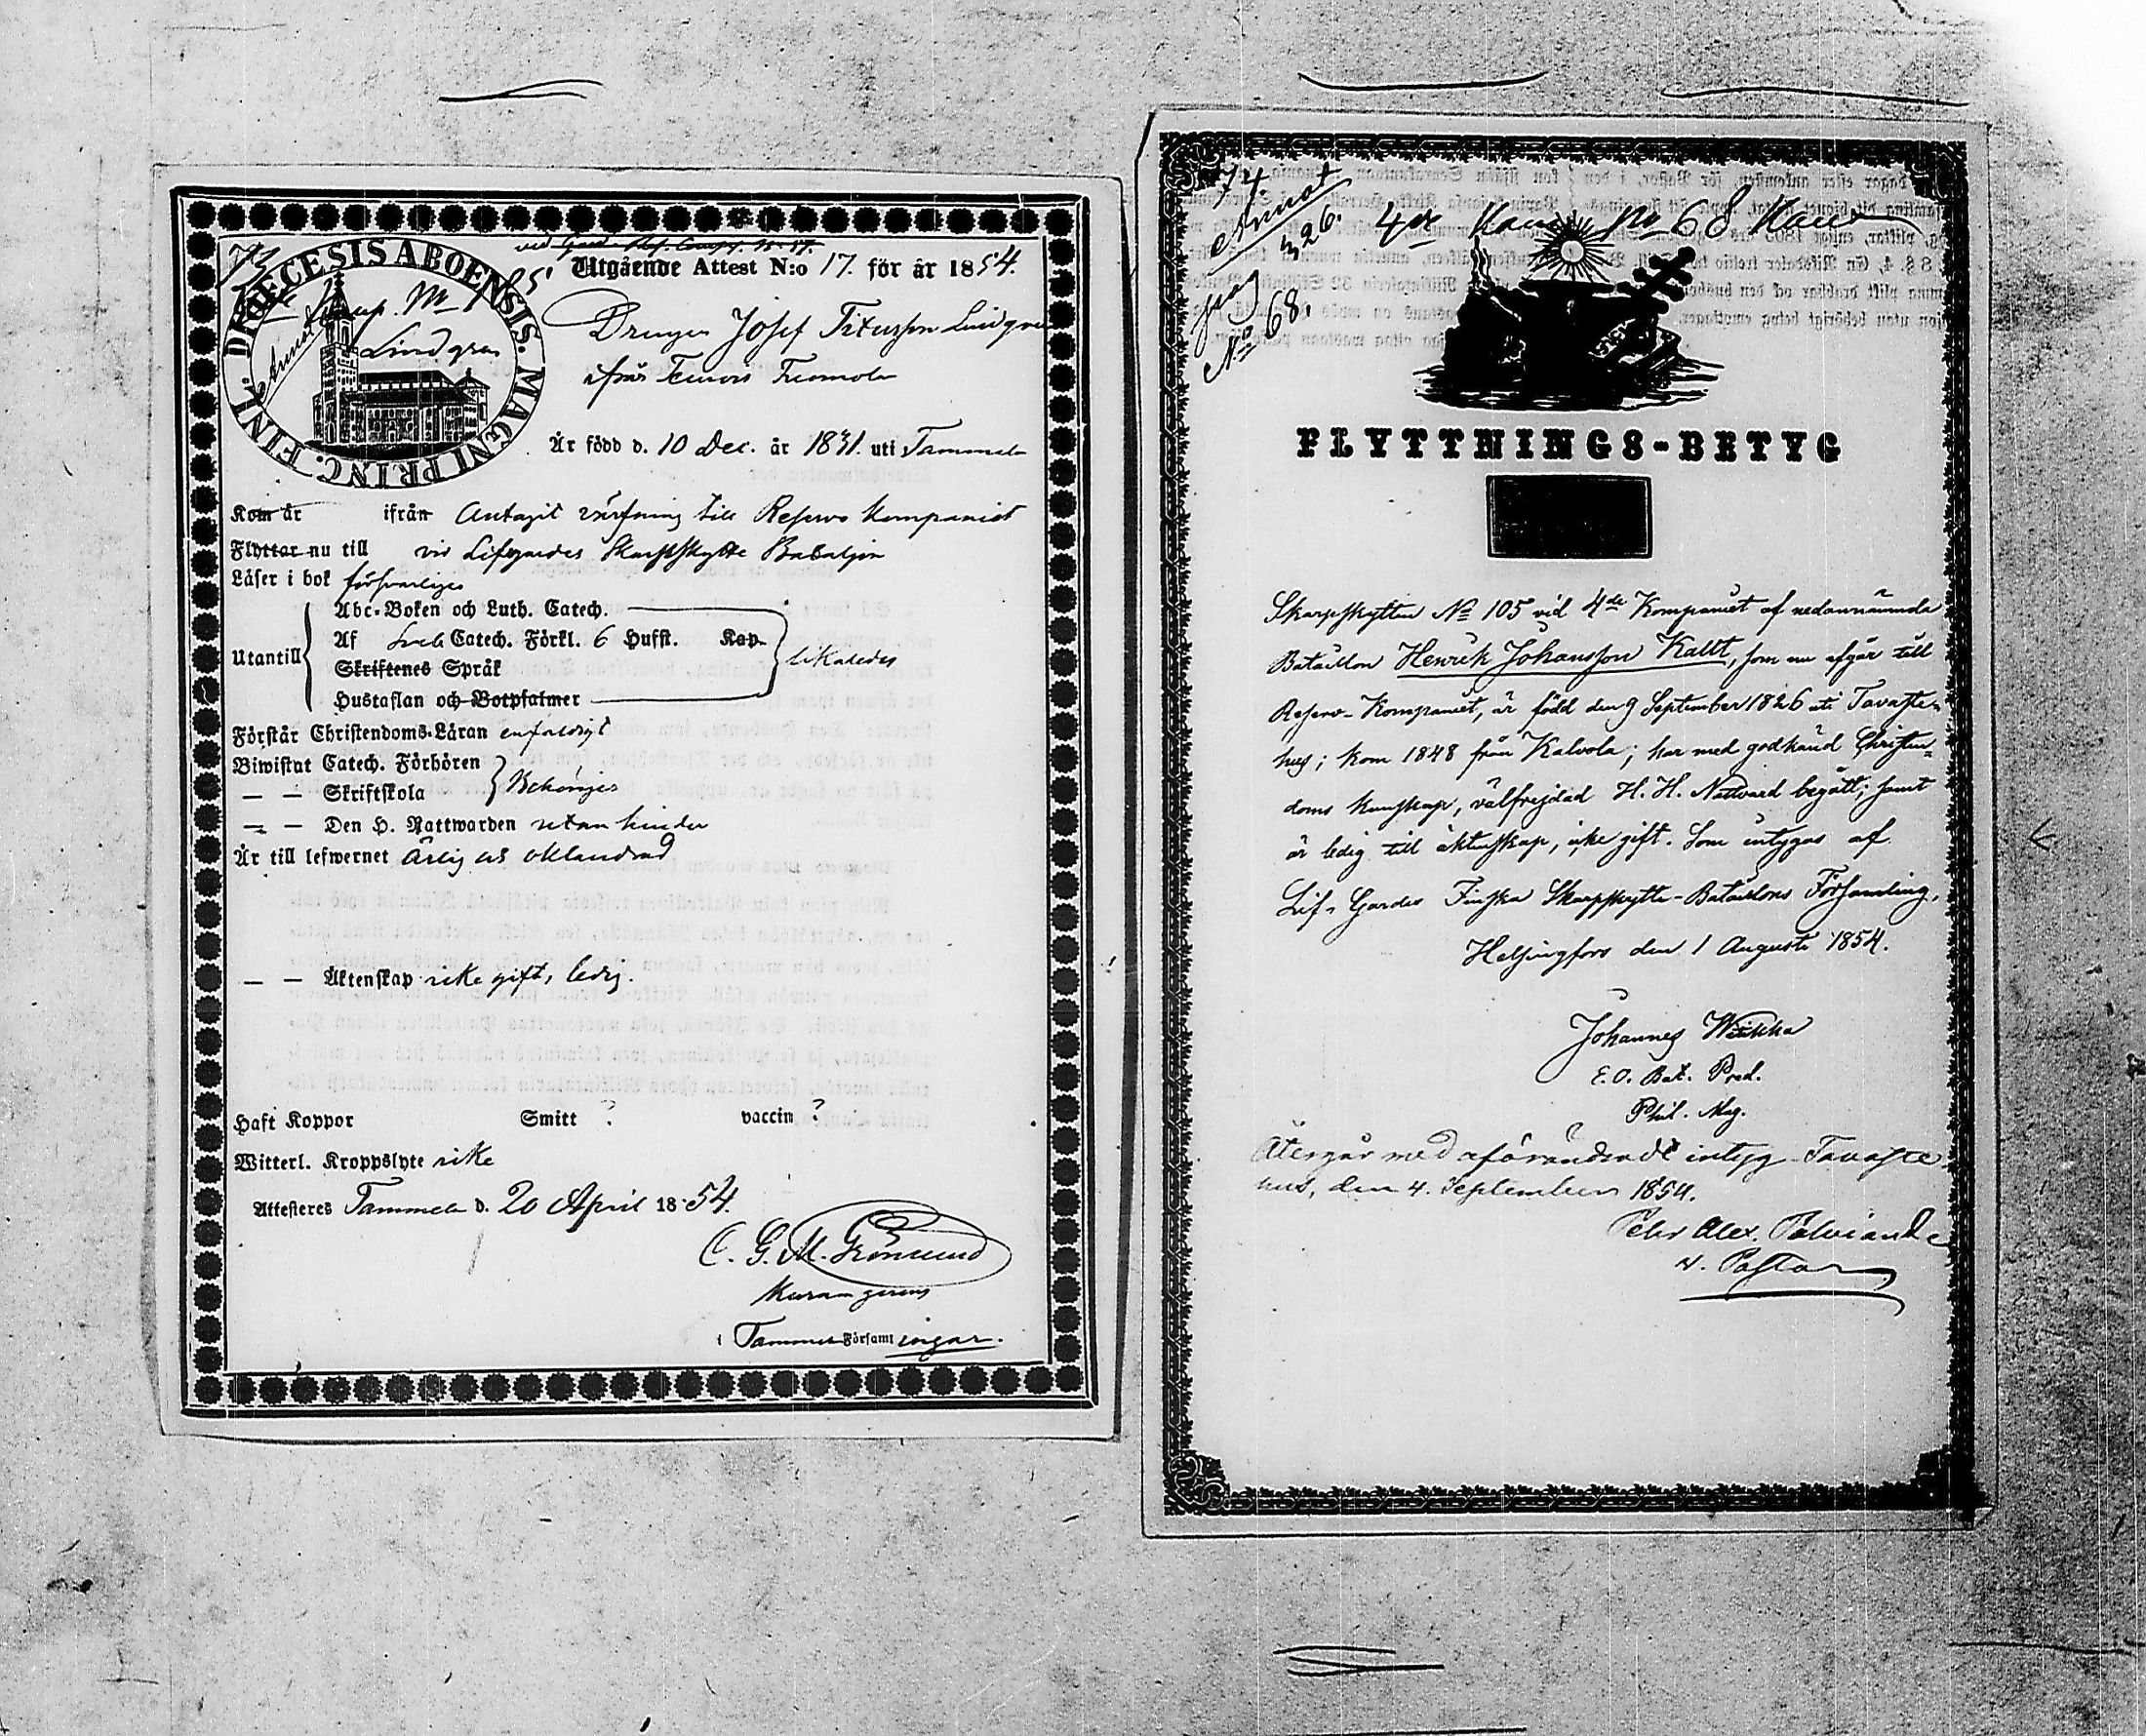 73
DIOECESIS ABOENSIS. MAGNI PRINC. FINL.
Lindgren
Utgående Attest N:o 17. för år 1854.
Drengen Josef Titusson Lindgren
ifrån
Är född d. 10 Dec. år 1831. uti Tammela
Kom år ifrån Antagit värfning till Reserv Kompaniet
Flyttar nu till vid Lifgardes Skarpskytte Bataljon
Läser i bok försvarligen
Utantill
Abc-Boken och Luth. Catech.
Af Sveb. Catech. Förkl. 6 Hufst. Kap.
Skriftenes Språk
Hustaflan och Botpsalmer
likaledes
Förstår Christendoms-Läran enfaldigt
Biwistat Catech. Förhören
— — Skriftskola
Behörigen
— — Den H. Nattwarden utan hinder
Är till lefwernet ärlig och oklandrad
— — Äktenskap icke gift, ledig.
Haft Koppor Smitt ? vaccin ?
Witterl. Kroppslyte icke
Attesteras Tammela d. 20 April 1854.
C. G. M. Grönlund
i Tammela Församlingar.
74.
Annot
326.
No 68.
No 68
FLYTTNINGS-BETYG
Skarpskytten No 105 vid 4de Kompaniet af nedannämnda
Bataillon Henrik Johansson Kallt, som nu afgår till
Reserv-Kompaniet, är född den 9 September 1826 uti Tavaste-
hus; kom 1848 från Kalvola; har med godkänd Christen-
doms kunskap, välfrejdad H. H. Nattvard begått; samt
är ledig till äktenskap, icke gift. Som intygas af
Lif-Gardes Finska Skarpskytte-Bataillons Församling,
Helsingfors den 1 Augusti 1854.
Johannes
E. O. Bat. Pred.
Phil. Mag.
Återgår med oförändradt intyg. Tavaste-
hus, den 4. September 1854.
Petr Alex.
v. Pastor